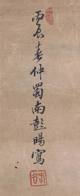 丙辰春仲蜀南彭暘寫